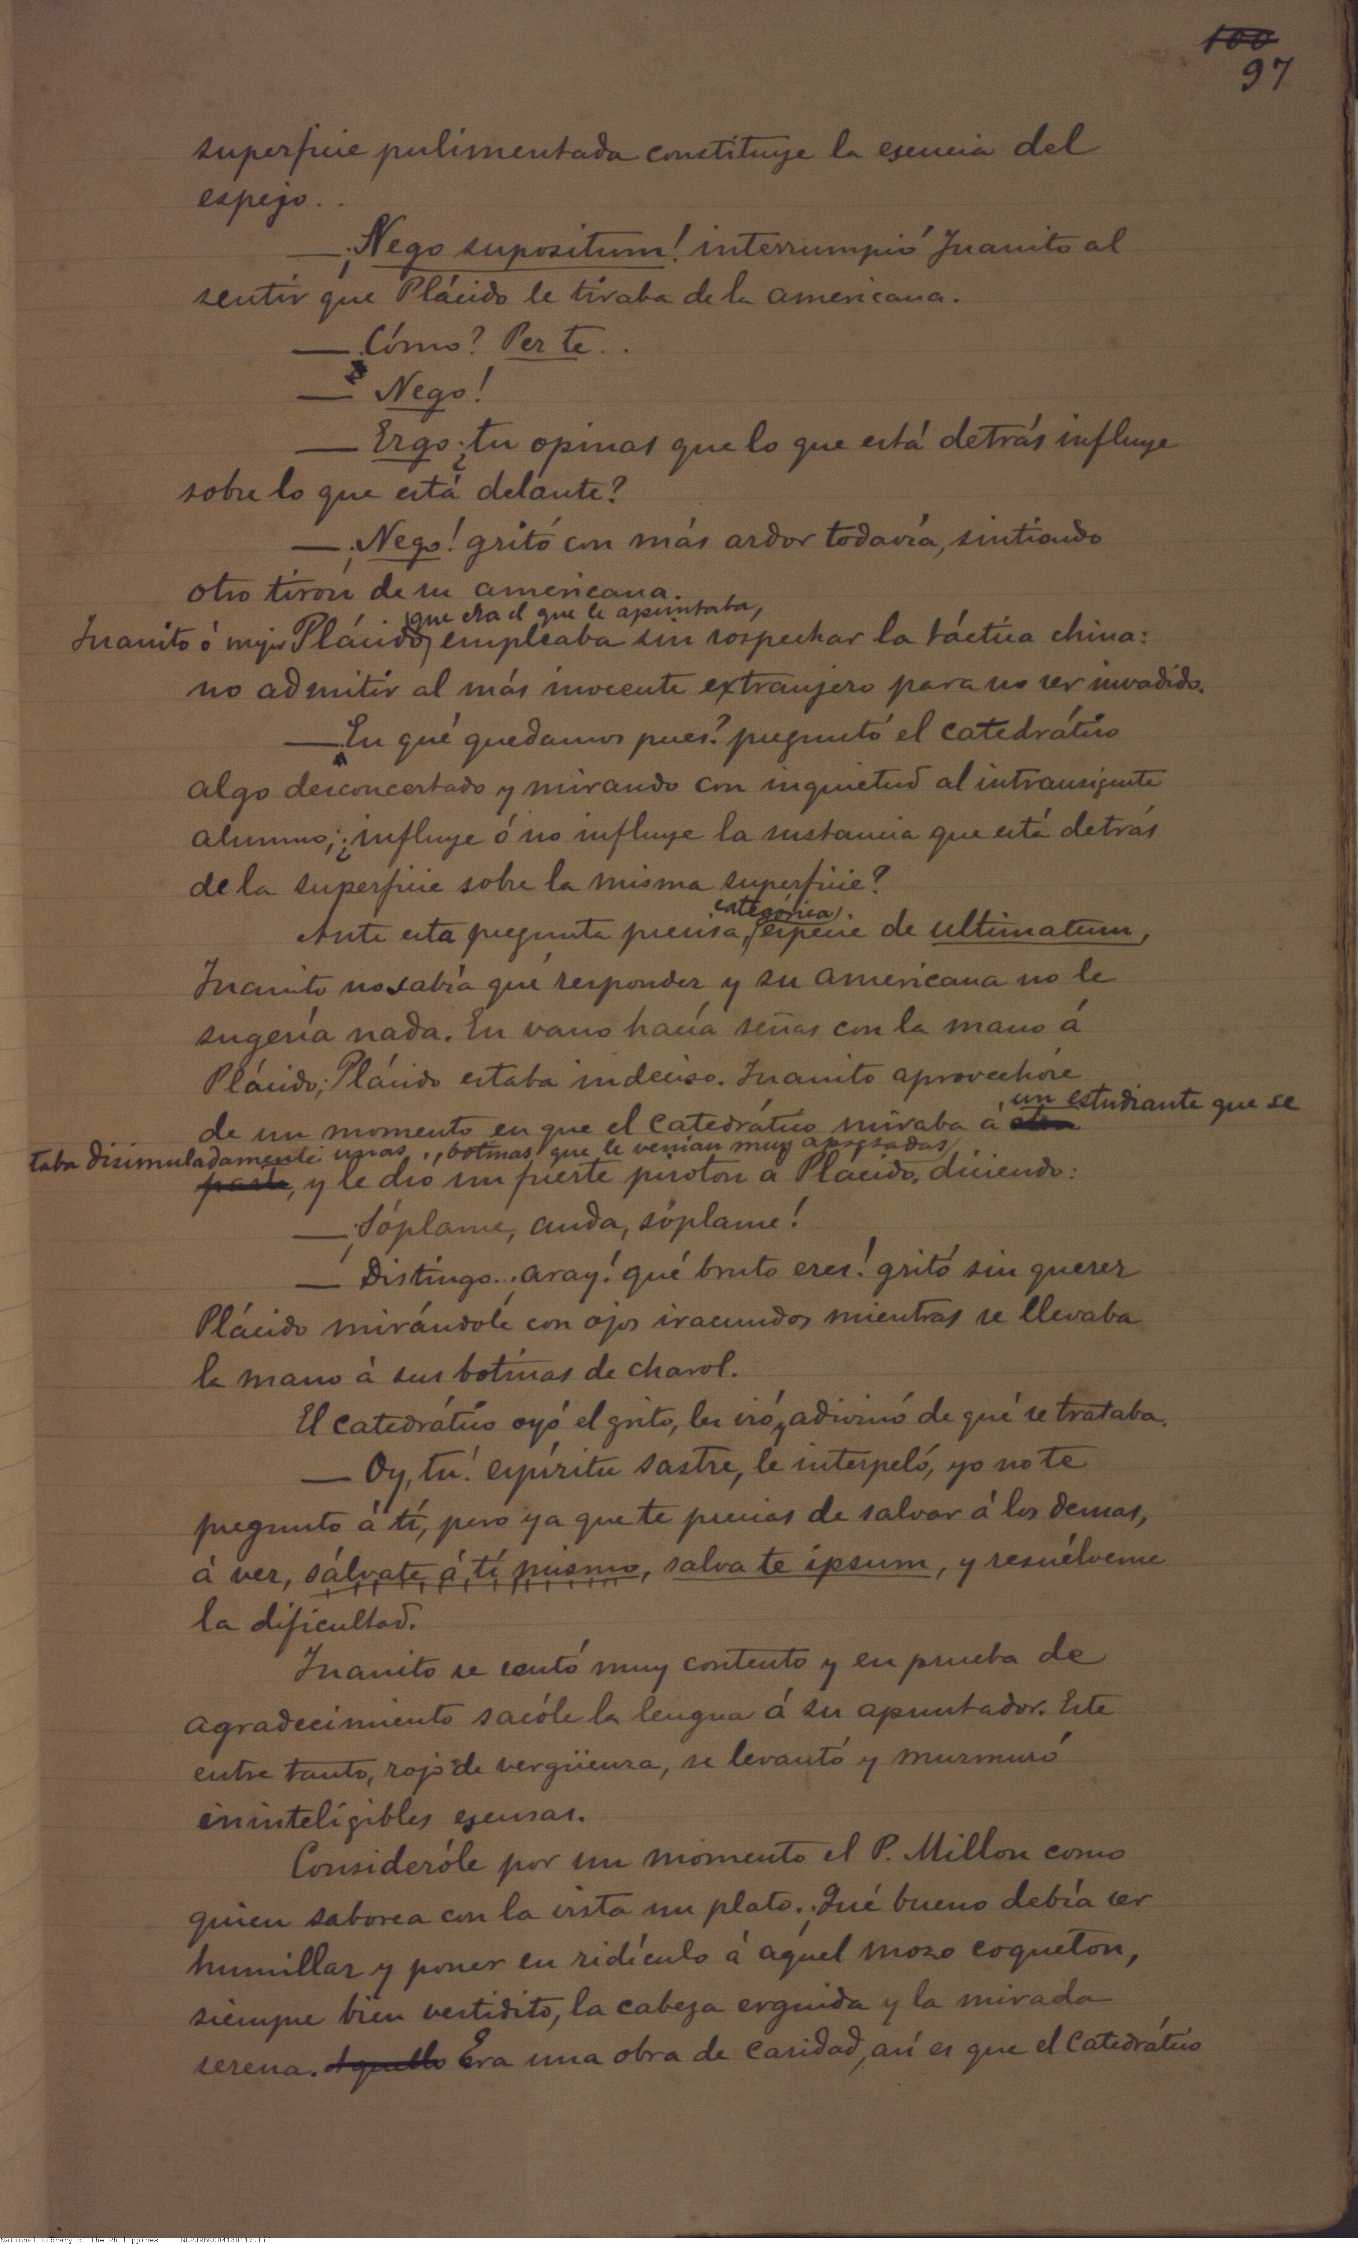 100
97
superficie pulimentada constituye la esencia del
espejo..
—¡Nego supositum! interrumpió Juanito al
sentir que Plácido le tiraba de la americana.
—Cómo? Per te..
— Nego!
— Ergo ¿tu opinas que lo que está detrás influye
sobre lo que está delante?
—¡Nego! gritó con más ardor todavía, sintiendo
otro tirón de su americana.
que era el que le apuntaba,
Juanito ó mejor Plácido, empleaba sin sospechar la táctica china:
no admitir al más inocente extranjero para no ser invadido.
—En qué quedamos pues? preguntó el catedrático
algo desconcertado y mirando con inquietud al intransigente
alumno; ¿influye ó no influye la sustancia que está detrás
de la superficie sobre la misma superficie?
categórica,
Ante esta pregunta precisa, especie de ultimatum,
Juanito no sabía qué responder y su americana no le
sugería nada. En vano hacía señas con la mano á
Plácido; Plácido estaba indeciso. Juanito aprovechóse
un estudiante que se
de un momento en que el catedrático miraba á otra
taba disimuladamente unas botinas que le venían muy apretadas
parte, y le dio un fuerte pisoton a Placido, diciendo:
—¡Sóplame, anda, sóplame!
— Distingo... aray! qué bruto eres! gritó sin querer
Plácido mirándole con ojos iracundos mientras se llevaba
la mano á sus botinas de charol.
El catedrático oyó el grito, les vió y adivinó de qué se trataba.
— Oy, tú! espíritu sastre, le interpeló, yo no te
pregunto á tí, pero ya que te precias de salvar á los demas,
á ver, sálvate á tí mismo, salva te ipsum, y resuélveme
la dificultad.
Juanito se sentó muy contento y en prueba de
agradecimiento sacóle la lengua á su apuntador. Este
entre tanto, rojo de vergüenza, se levantó y murmuró
ininteligibles escusas.
Consideróle por un momento el P. Millon como
quien saborea con la vista un plato. ¡Qué bueno debía ser
humillar y poner en ridículo á aquel mozo coqueton,
siempre bien vestidito, la cabeza erguida y la mirada
serena. Aquello Era una obra de caridad, así es que el catedrático